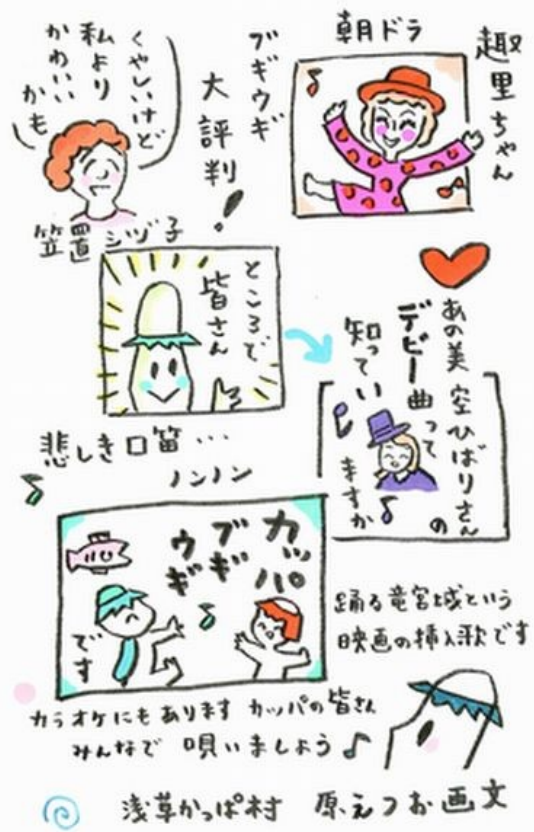 趣里ちゃん
朝ドラ
ブギウギ
大評判!
くやしいけど
私より
かわいい
かも
笠置シヅ子
ところで
皆さん
あの美空ひばりさんの
デビー曲って
知っていますか
悲しき口笛…
ノンノン
カッパ
ブギ
ウギ
です
踊る竜宮城という
映画の挿入歌です
カラオケにもあります カッパの皆さん
みんなで 唄いましょう♪
浅草かっぱ村 原えつお画文